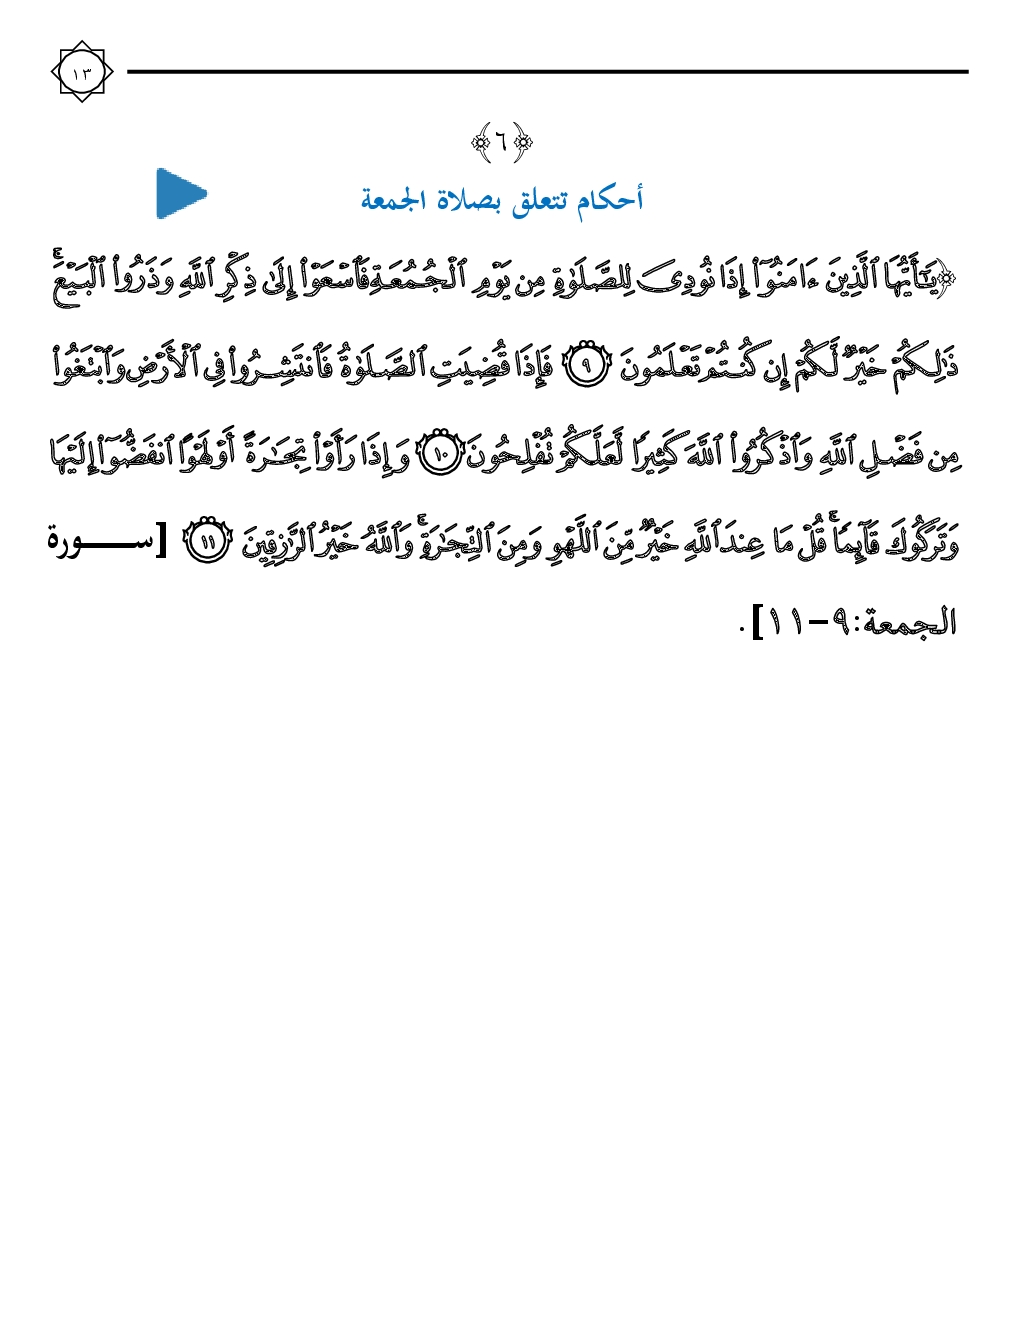 ١٣
﴿٦﴾
أحكام تتعلق بصلاة الجمعة
﴿يَٰٓأَيُّهَا ٱلَّذِينَ ءَامَنُوٓاْ إِذَا نُودِيَ لِلصَّلَوٰةِ مِن يَوۡمِ ٱلۡجُمُعَةِ فَٱسۡعَوۡاْ إِلَىٰ ذِكۡرِ ٱللَّهِ وَذَرُواْ ٱلۡبَيۡعَۚ
ذَٰلِكُمۡ خَيۡرٞ لَّكُمۡ إِن كُنتُمۡ تَعۡلَمُونَ ٩ فَإِذَا قُضِيَتِ ٱلصَّلَوٰةُ فَٱنتَشِرُواْ فِي ٱلۡأَرۡضِ وَٱبۡتَغُواْ
مِن فَضۡلِ ٱللَّهِ وَٱذۡكُرُواْ ٱللَّهَ كَثِيرٗا لَّعَلَّكُمۡ تُفۡلِحُونَ ١٠ وَإِذَا رَأَوۡاْ تِجَٰرَةً أَوۡ لَهۡوًا ٱنفَضُّوٓاْ إِلَيۡهَا
وَتَرَكُوكَ قَآئِمٗاۚ قُلۡ مَا عِندَ ٱللَّهِ خَيۡرٞ مِّنَ ٱللَّهۡوِ وَمِنَ ٱلتِّجَٰرَةِۚ وَٱللَّهُ خَيۡرُ ٱلرَّٰزِقِينَ ١١ [ســـورة
الجمعة:٩-١١].